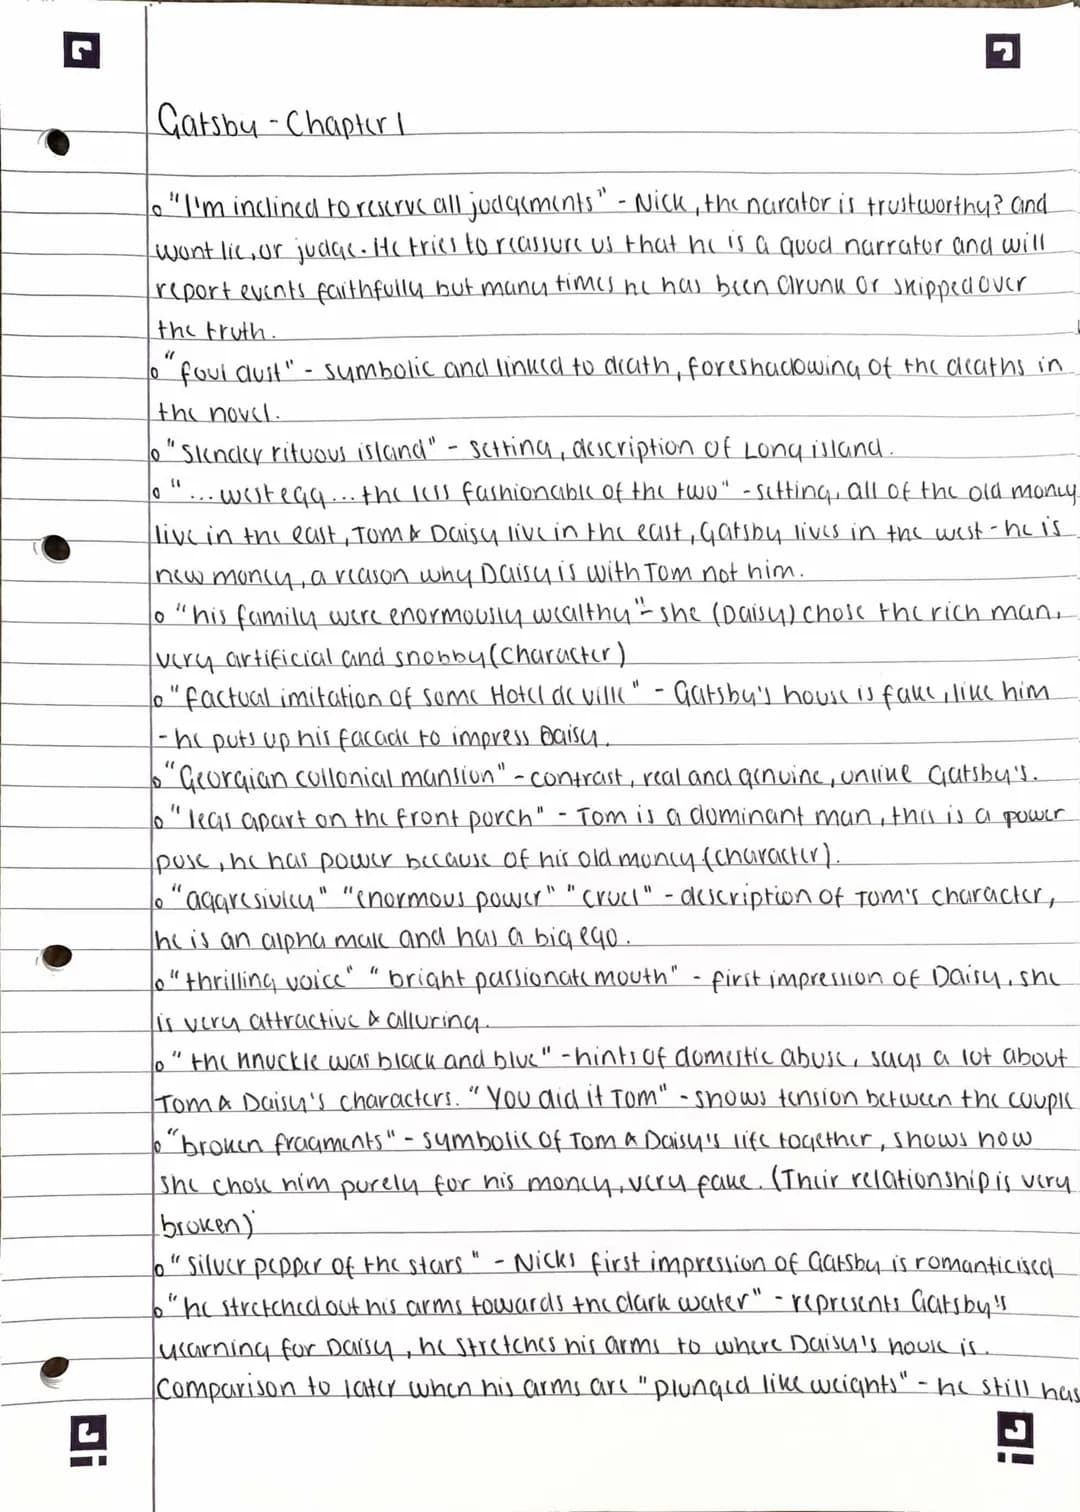 Gatsby - Chapter 1
o "I'm inclined to reserve all judgements" - Nick, the narator is trustworthy? and
wont lie, or judge. He tries to reassure us that he is a good narrator and will
report events faithfully but many times he has been drunk or skipped over
the truth.
o "foul dust" - symbolic and linked to death, foreshadowing of the deaths in
the novel.
o "Slender rituous island" - setting, description of Long island.
o "... west egg ... the less fashionable of the two" - setting, all of the old money
live in the east, Tom & Daisy live in the east, Gatsby lives in the west - he is
new money, a reason why Daisy is with Tom not him.
o "his family were enormously wealthy" - she (Daisy) chose the rich man,
very artificial and snobby (character)
o "factual imitation of some Hotel de ville" - Gatsby's house is fake, like him
- he puts up his facade to impress Daisy.
o "Georgian collonial mansion" - contrast, real and genuine, unlike Gatsby's.
o "legs apart on the front porch" - Tom is a dominant man, this is a power
pose, he has power because of his old money (character).
o "aggresivley" "enormous power" "cruel" - description of Tom's character,
he is an alpha male and has a big ego.
o "thrilling voice" "bright passionate mouth" - first impression of Daisy, she
is very attractive & alluring.
o "the knuckle was black and blue" - hints of domestic abuse, says a lot about
Tom & Daisy's characters. "You did it Tom" - shows tension between the couple
o "broken fragments" - symbolic of Tom & Daisy's life together, shows how
she chose him purely for his money, very fake. (Their relationship is very
broken)
o "silver pepper of the stars" - Nicks first impression of Gatsby is romanticised
o "he stretched out his arms towards the dark water" - represents Gatsby's
yearning for Daisy, he stretches his arms to where Daisy's house is.
Comparison to later when his arms are "plunged like weights" - he still has